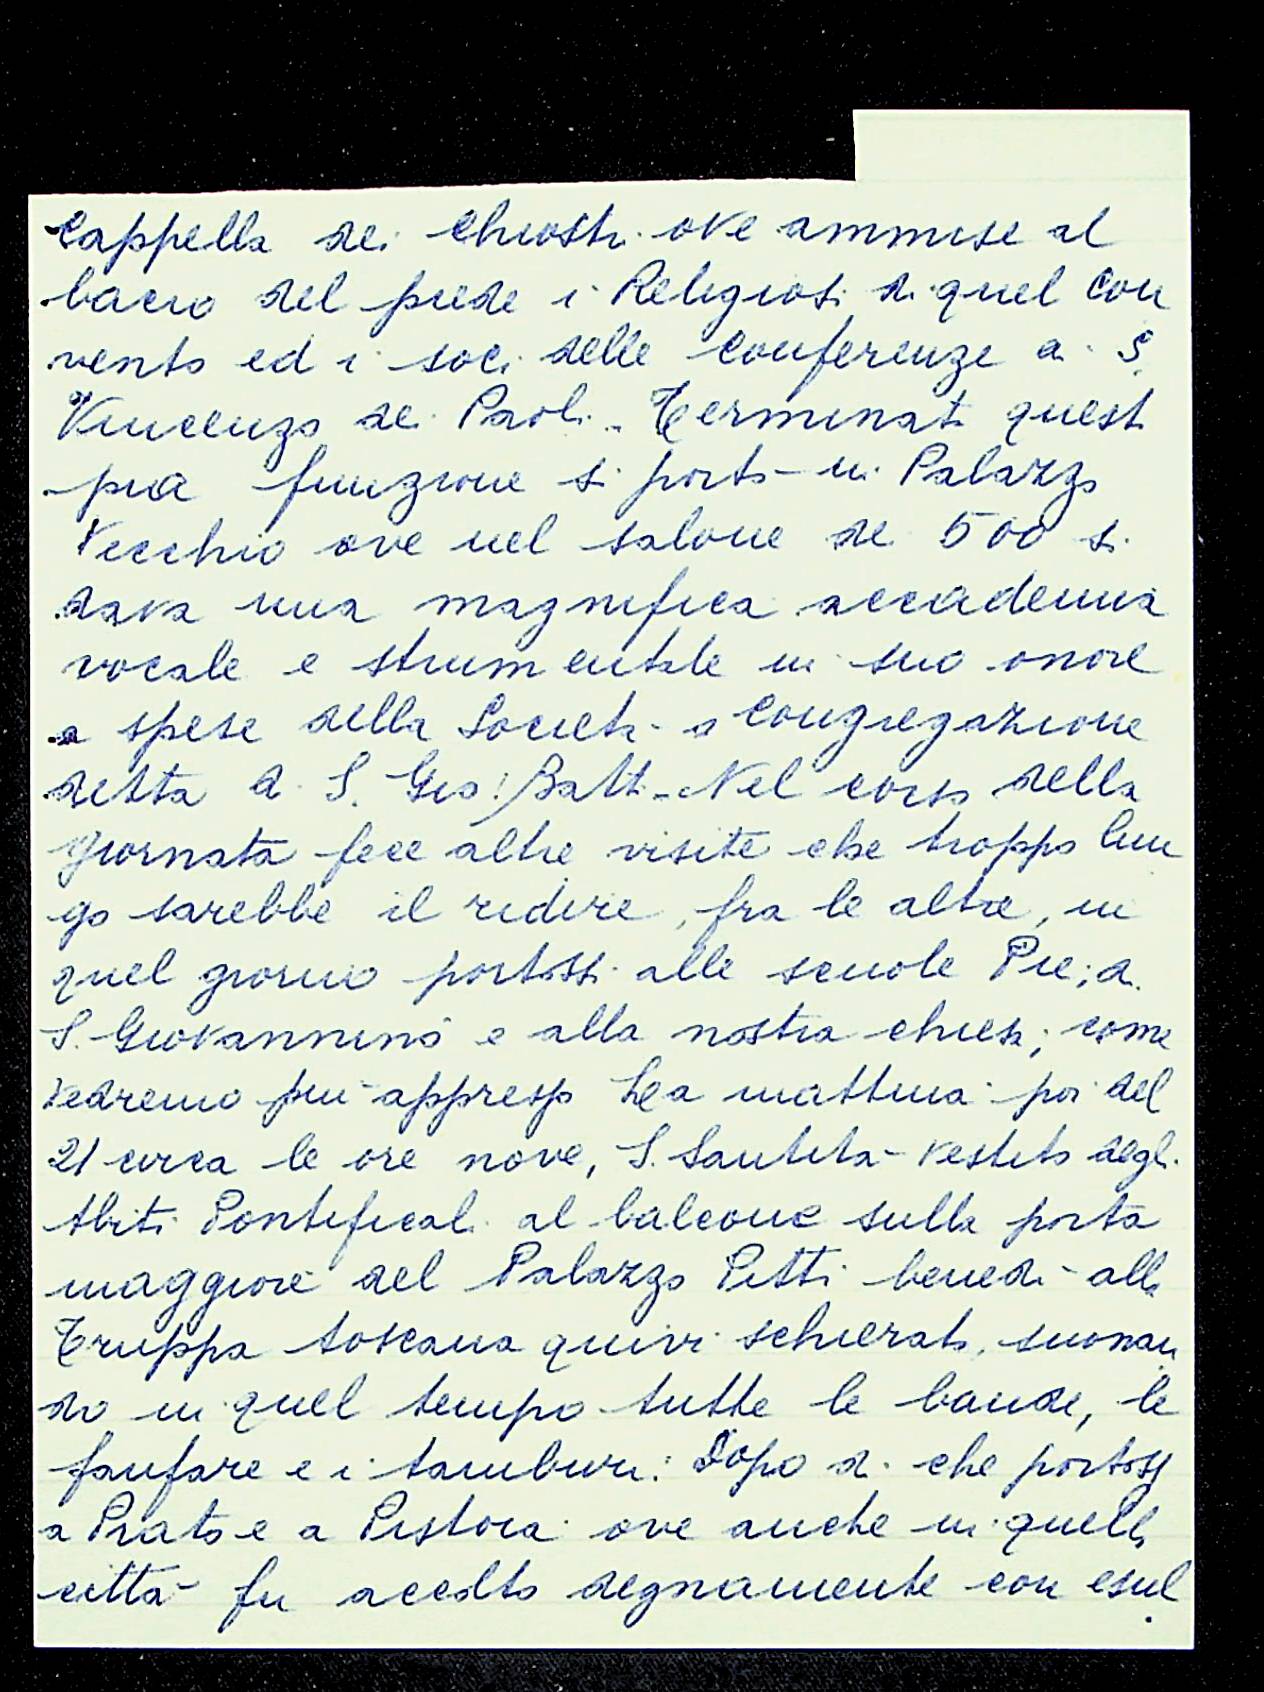 Cappella dei Chiostri ove ammise al
bacio del piede i Religiosi di quel con
vento ed i soci delle conferenze di S.
Vincenzo de Paoli. Terminati quest
pia funzione si portò in Palazzo
Vecchio ove nel salone de 500 si
dava una magnifica accademia
vocale e strumentale in suo onore
a spese della Società o Congregazione
detta di S. Gio: Batt. Nel corso della
giornata fece altre visite che troppo lun
go sarebbe il ridire, fra le altre, in
quel giorno portossi alle scuole Pie; a
S. Giovannino e alla nostra chiesa; come
vedremo più appresso La mattina poi del
21 circa le ore nove, S. Santità vestito degli
Abiti Pontificali al balcone sulla porta
maggiore del Palazzo Pitti benedì alla
Truppa toscana quivi schierata, suonan
do in quel tempo tutte le bande, le
fanfare e i tamburi. Dopo di che portossi
a Prato e a Pistoia ove anche in quelle
città fu accolto degnamente con esul